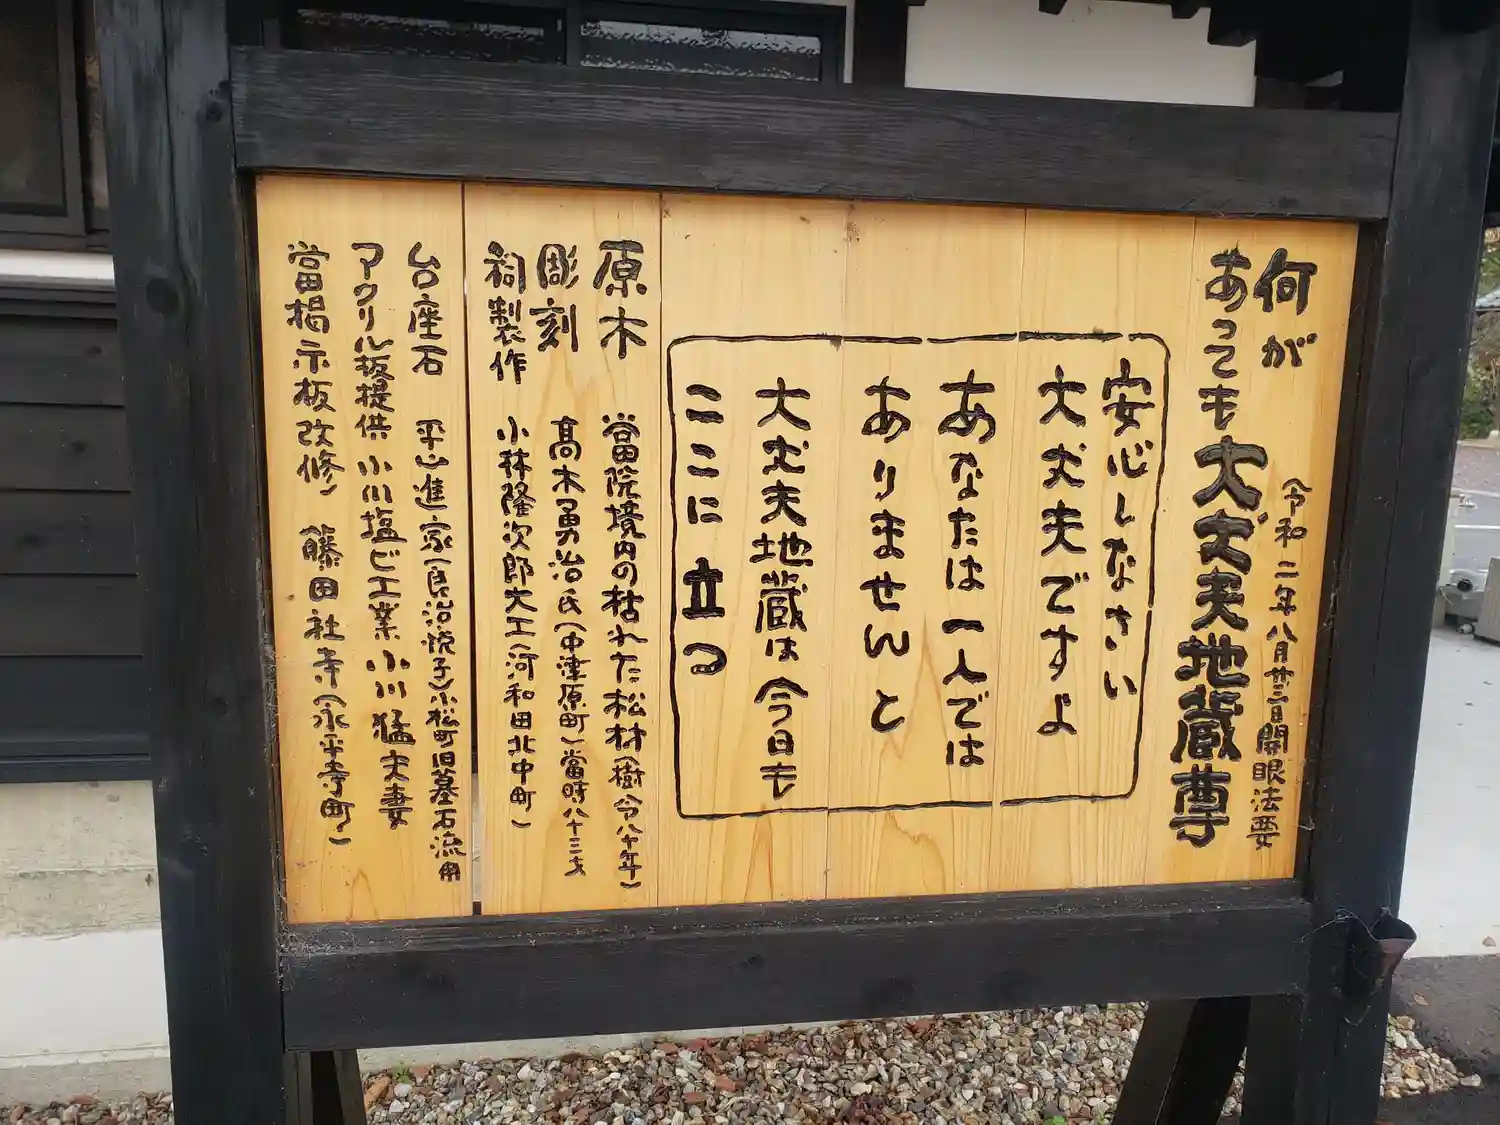 何が
あっても大丈夫地蔵尊
(令和二年八月廿三日開眼法要
安心しなさい
大丈夫ですよ
あなたは一人では
ありませんと
大丈夫地蔵は今日も
ここに立つ
原木 當院境内の枯れた松材(樹令八十年)
彫刻 髙木勇治氏(中津原町)當時八十三才
祠製作 小林隆次郎大工(河和田北中町)
台座石 平山進家(良治悦子)小松町旧墓石流用
アクリル板提供 小川塩ビ工業 小川猛夫妻
當掲示板改修 藤田社寺(永平寺町)